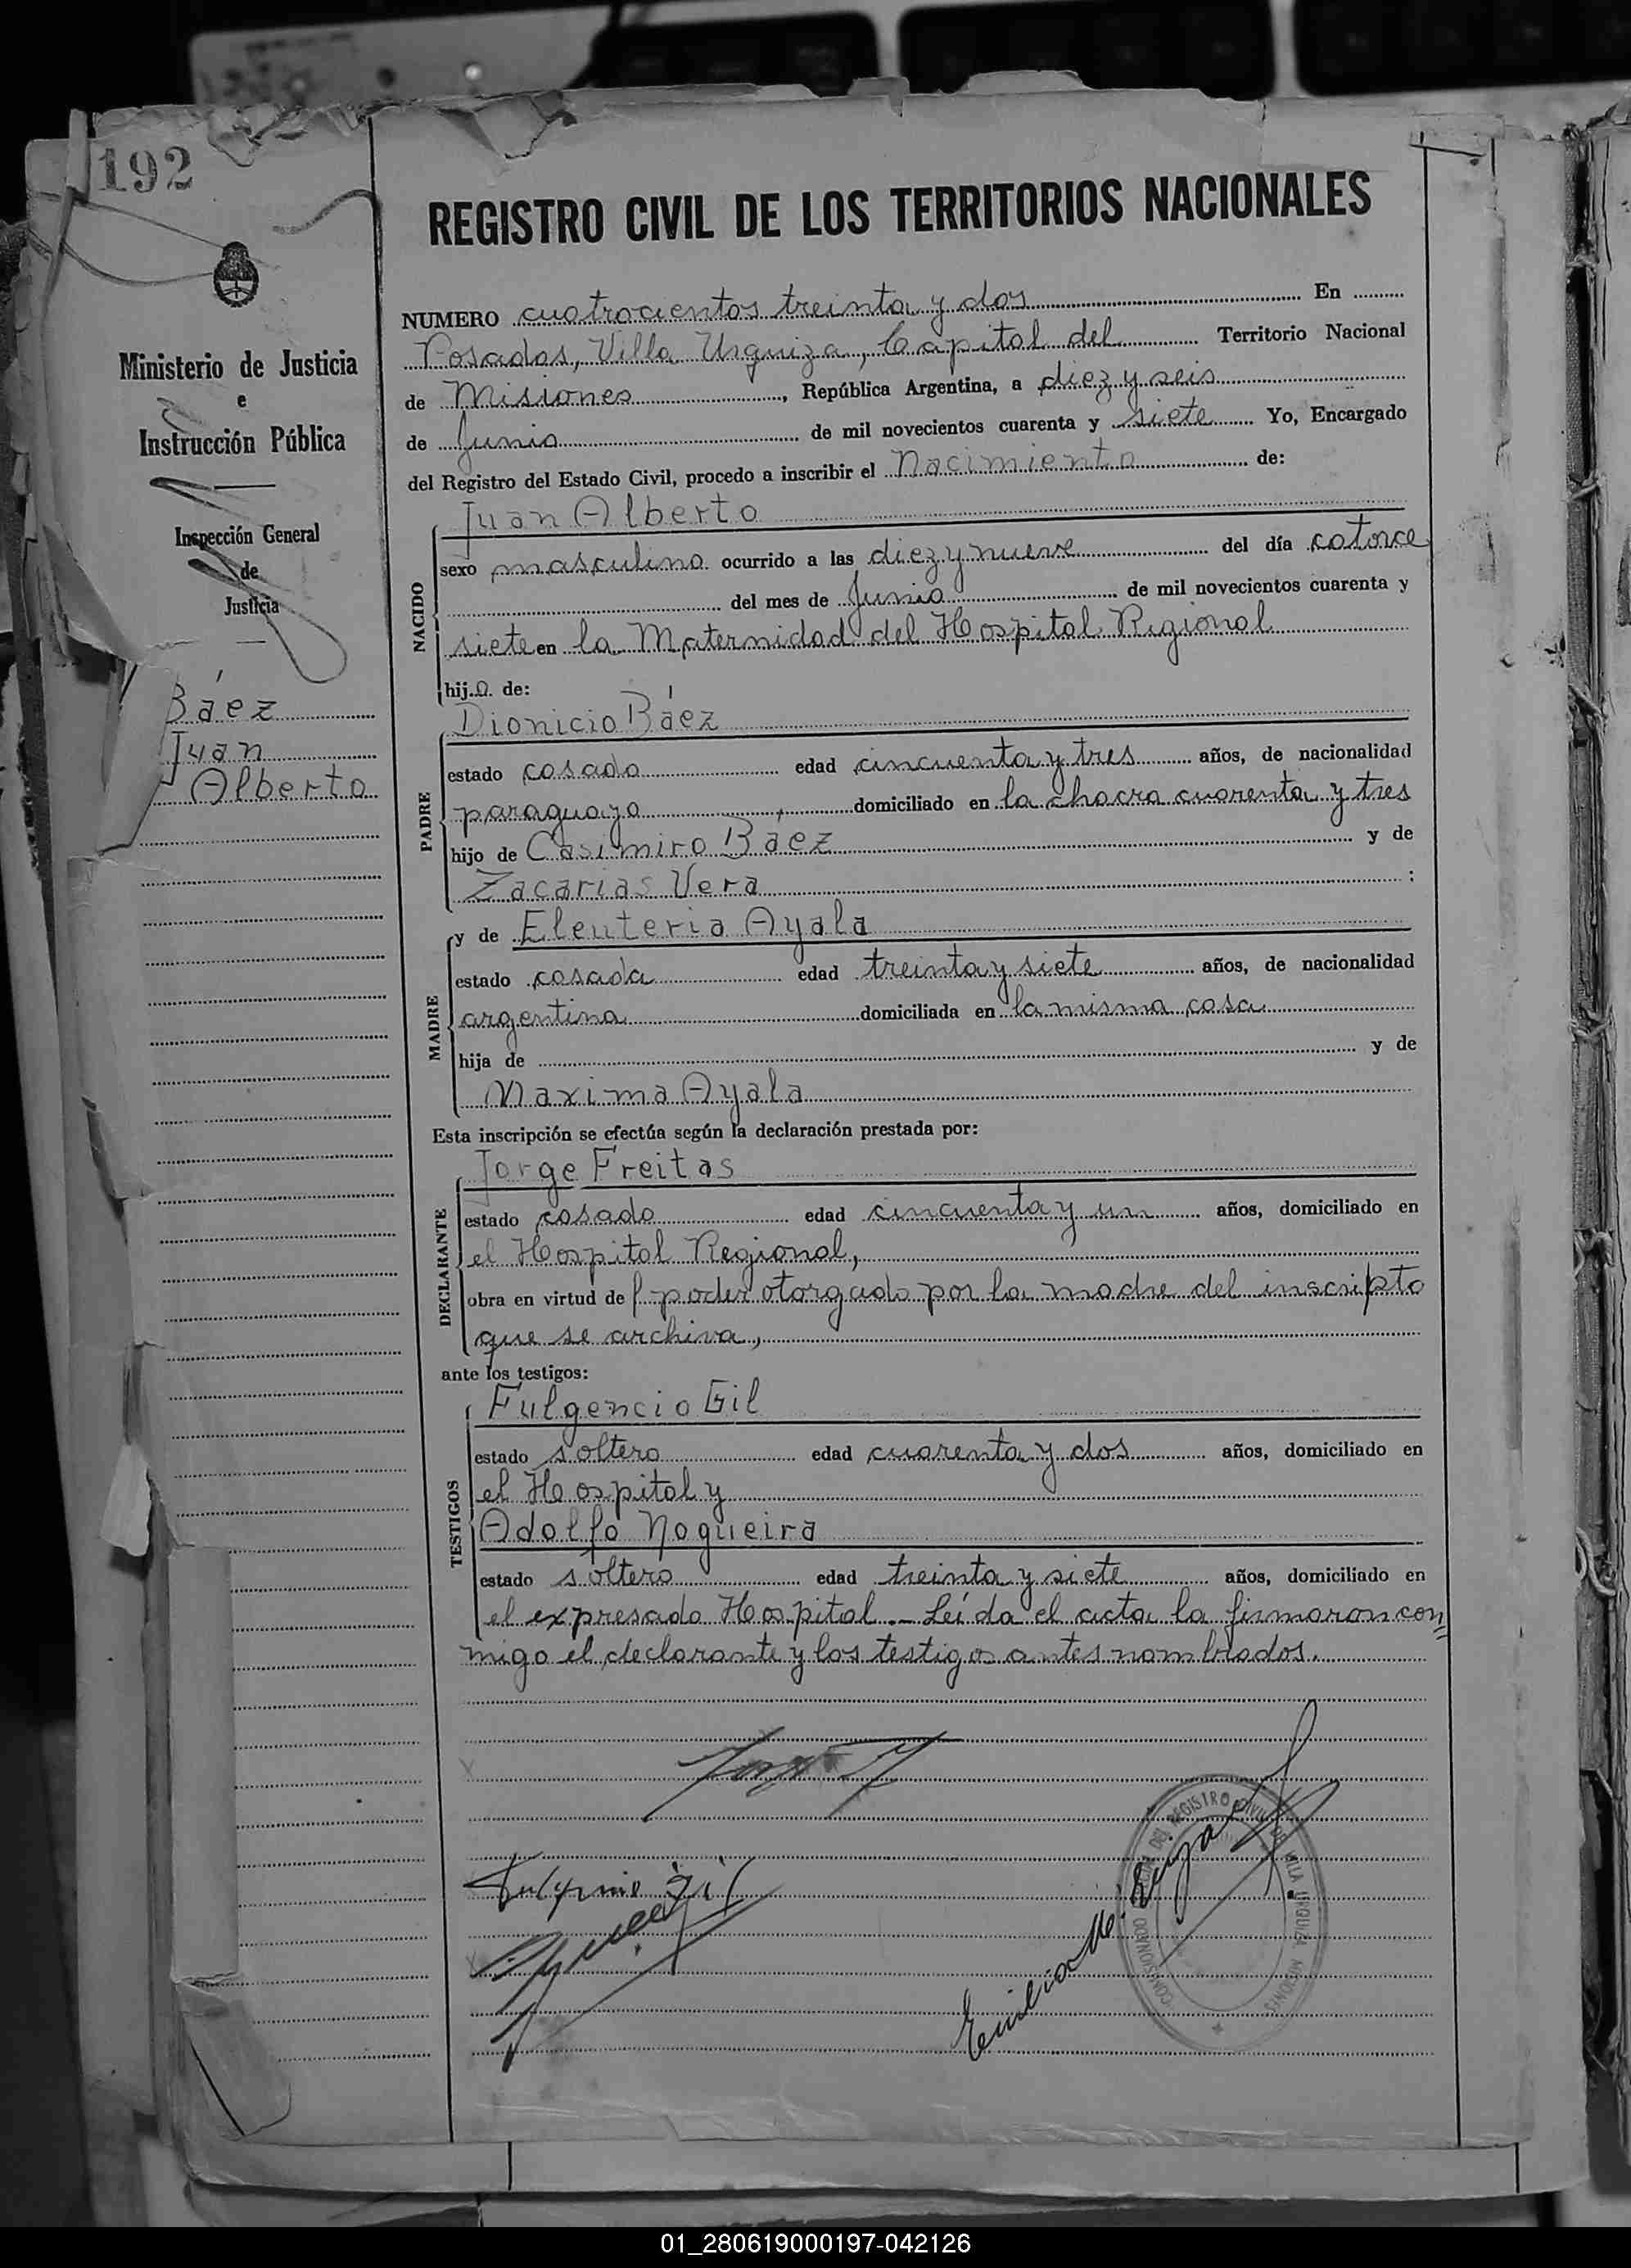 192
REGISTRO CIVIL DE LOS TERRITORIOS NACIONALES
Ministerio de Justicia
e
Instrucción Pública
Inspección General
de
Justicia
Báez
Juan
Alberto
NUMERO cuatrocientos treinta y dos En
Posadas, Villa Urquiza, Capital del Territorio Nacional
de Misiones, República Argentina, a diez y seis
de Junio de mil novecientos cuarenta y siete Yo, Encargado
del Registro del Estado Civil, procedo a inscribir el Nacimiento de:
NACIDO
Juan Alberto
sexo masculino ocurrido a las diez y nueve del día catorce
del mes de Junio de mil novecientos cuarenta y
siete en la Maternidad del Hospital Regional
hijo de:
PADRE
Dionicio Báez
estado casado edad cincuenta y tres años, de nacionalidad
paraguaya, domiciliado en la chacra cuarenta y tres
hijo de Casimiro Báez y de
Zacarias Vera :
MADRE
y de Eleuteria Ayala
estado casada edad treinta y siete años, de nacionalidad
argentina domiciliada en la misma casa
hija de y de
Maxima Ayala
Esta inscripción se efectúa según la declaración prestada por:
DECLARANTE
Jorge Freitas
estado casado edad cincuenta y un años, domiciliado en
el Hospital Regional,
obra en virtud del poder otorgado por la madre del inscripto
que se archiva,
ante los testigos:
TESTIGOS
Fulgencio Gil
estado soltero edad cuarenta y dos años, domiciliado en
el Hospital y
Adolfo Nogueira
estado soltero edad treinta y siete años, domiciliado en
el expresado Hospital.- Leída el acta la firmaron con=
migo el declarante y los testigos antes nombrados.
Fulgencio Gil
REGISTRO CIVIL DE VILLA URQUIZA MISIONES
01_280619000197-042126